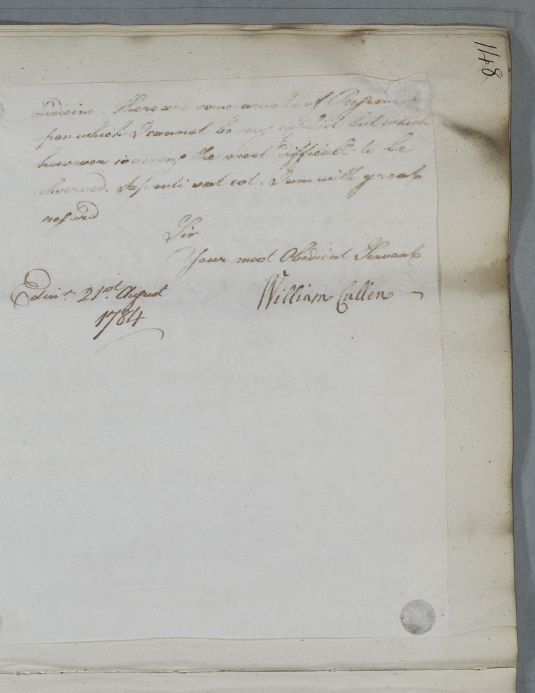 148
medicine. There are some
from which I cannot be very but which
however is always the most difficult to be
observed. Sapienti sat est. I am with great
regard
Sir
Your most Obedient Servant
William Cullen
Edinr. 21st. August
1784